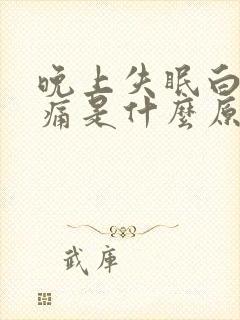 晚上失眠白
痛是什麼原
武庫